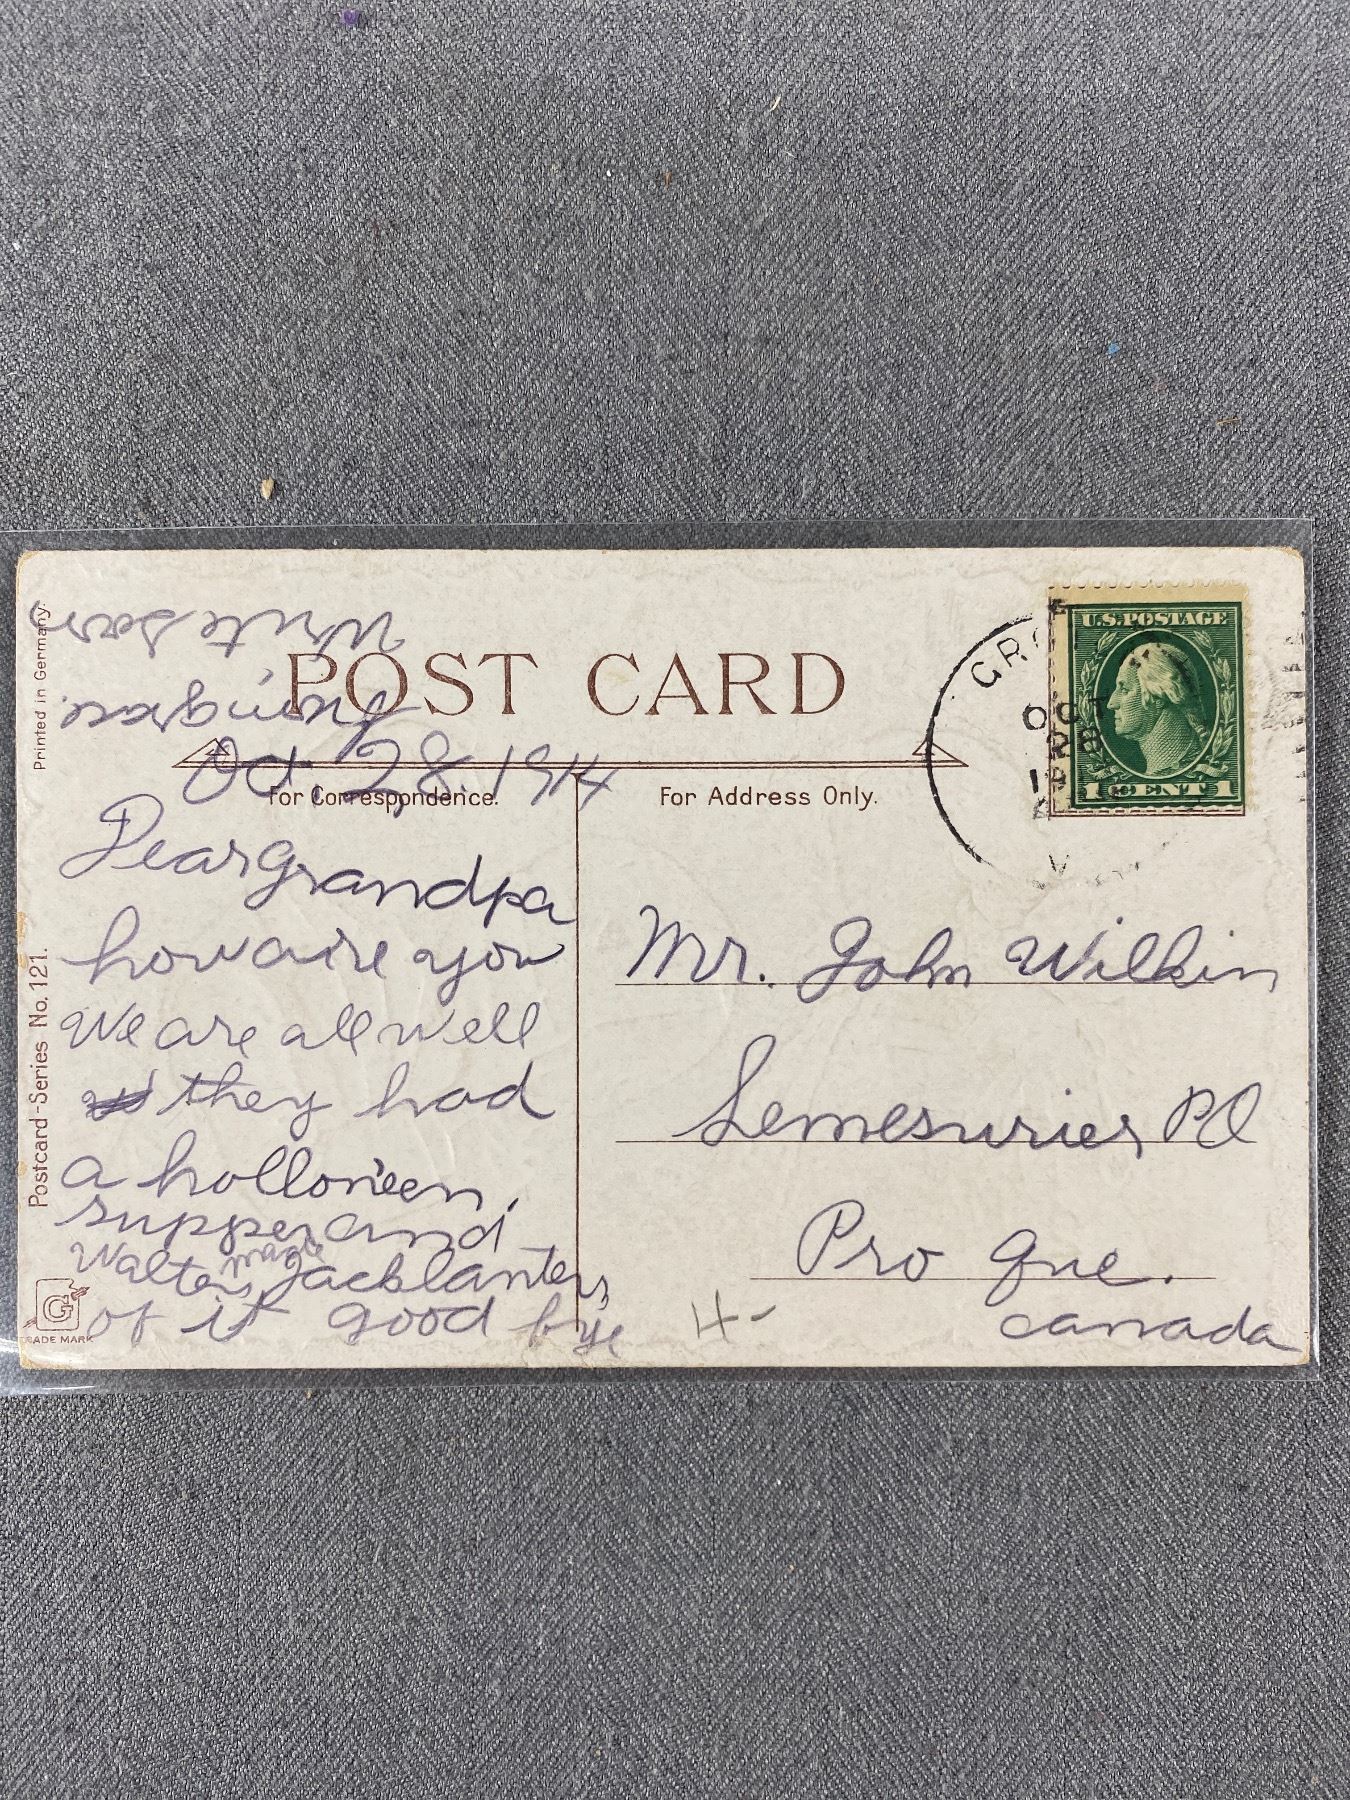 POST CARD
For Correspondence.
For Address Only.
Printed in Germany.
Postcard-Series No. 121.
G
TRADE MARK
Oct. 28. 1914
Dear Grandpa
how are you
We are all well
they had
a hollorieen,
supper and
Walter Jacklanters
of it good bye
Write soon
from grace.
Mr. John Wilkin
Lemesurier PO
Pro Que.
Canada
H-
U.S. POSTAGE
1 CENT 1
OCT
28
1